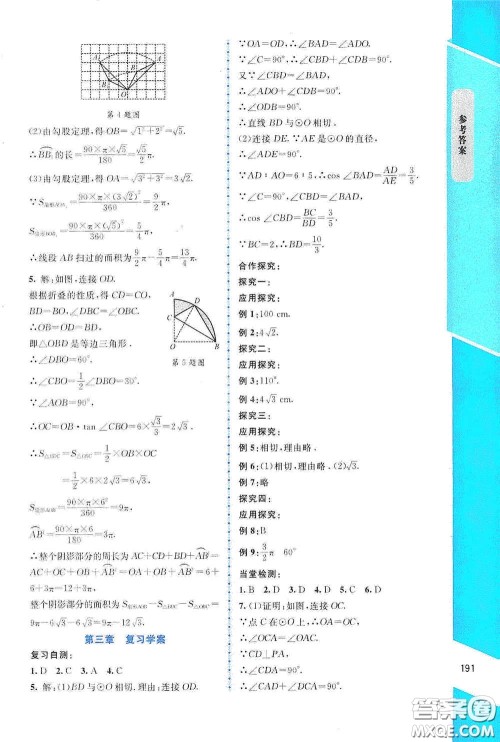 A
A₁
B
B₁
O
第4题图
(2)由勾股定理,得OB=√(1²+2²)=√5.
∴BB₁的长=90×π×√5/180=√5/2π.
(3)由勾股定理,得OA=√(3²+3²)=3√2.
∵S扇形AOA₁=90×π×(3√2)²/360=9/2π,
S扇形BOB₁=90×π×(√5)²/360=5/4π,
∴线段AB扫过的面积=9/2π-5/4π=13/4π.
5. 解:如图,连接OD.
根据折叠的性质,得CD=CO,
BD=BO,∠DBC=∠CBO,
∴OB=OD=BD,
即△OBD是等边三角形.
∴∠DBO=60°.
∴∠CBO=1/2∠DBO=30°.
∵∠AOB=90°,
A
D
C
O
B
第5题图
∴OC=OB·tan∠CBO=6×√3/3=2√3.
∴S△BDC=S△OBC=1/2×OB×OC=1/2×6×2√3=6√3,
S扇形AOB=90×π×6²/360=9π,
AB=90×π×6/180=3π.
∴整个阴影部分的周长为AC+CD+BD+AB=
AC+OC+OB+AB=OA+OB+AB=6+
6+3π=12+3π.
整个阴影部分的面积为S扇形AOB-S△BDC-S△OBC=
9π-6√3-6√3=9π-12√3.
第三章 复习学案
复习自测:
1. D 2. C 3. A 4. C
5. 解:(1)BD与⊙O相切.理由:连接OD.
∵OA=OD,∴∠BAD=∠ADO.
∵∠C=90°,∴∠CBD+∠CDB=90°.
又∵∠CBD=∠BAD,
∴∠ADO+∠CDB=90°.
∴∠ODB=90°.
∴直线BD与⊙O相切.
(2)连接DE.∵AE是⊙O的直径,
∴∠ADE=90°.
∵AD∶AO=6∶5,∴cos∠BAD=AD/AE=3/5.
∵∠C=90°,∠CBD=∠BAD,
∴cos∠CBD=BC/BD=3/5.
∵BC=2,∴BD=10/3.
合作探究:
探究一:
应用探究:
例1:100 cm.
例2:4√2.
探究二:
应用探究:
例3:110°.
例4:4√3 cm.
探究三:
应用探究:
例5:相切,理由略.
例6:(1)相切,理由略.(2)√3.
例7:略.
探究四:
应用探究:
例8:B
例9:3/2π 60°
当堂检测:
1. B 2. D 3. D 4. D 5. C 6. D
7. (1)证明:如图,连接OC.
∵点C在⊙O上,OA=OC,
∴∠OCA=∠OAC.
∵CD⊥PA,
∴∠CDA=90°.
∴∠CAD+∠DCA=90°.
参考答案
191